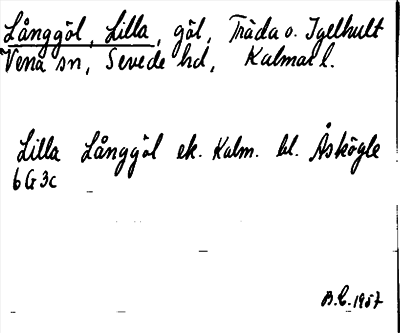 Långgöl, Lilla, göl, Träda o. Igelhult
Vena sn, Sevede hd, Kalmar l.
Lilla Långgöl ek. Kalm. bl. Åskögle
6G3c
B.C. 1957